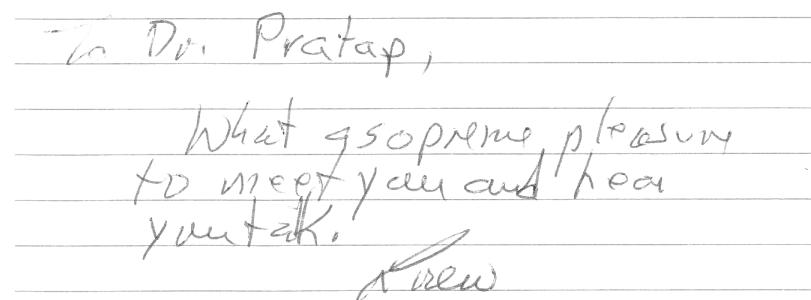 To Dr. Pratap,
What a sopreme pleasure
to meet you and hear
you talk.
Drew